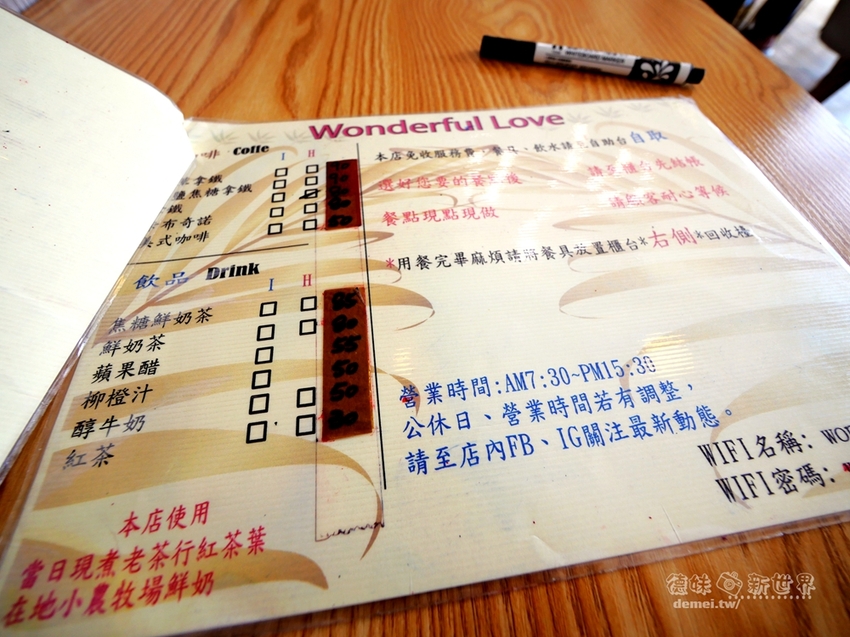 Wonderful Love
啡 Coffe
I H
拿鐵
焦糖拿鐵
鐵
布奇諾
式咖啡
飲品 Drink
I H
焦糖鮮奶茶
鮮奶茶
蘋果醋
柳橙汁
醇牛奶
紅茶
50
50
本店使用
當日現煮老茶行紅茶葉
在地小農牧場鮮奶
本店免收服務費,餐具、飲水請至自助台自取
選好您要的餐點後 請至櫃台先結帳
餐點現點現做 請貴客耐心等候
*用餐完畢麻煩請將餐具放置櫃台*右側*回收檯
營業時間:AM7:30~PM15:30
公休日、營業時間若有調整,
請至店內FB、IG關注最新動態。
WIFI名稱: WO
WIFI密碼:
WHITEBOARD MARKER
德味 新世界
demei.tw/